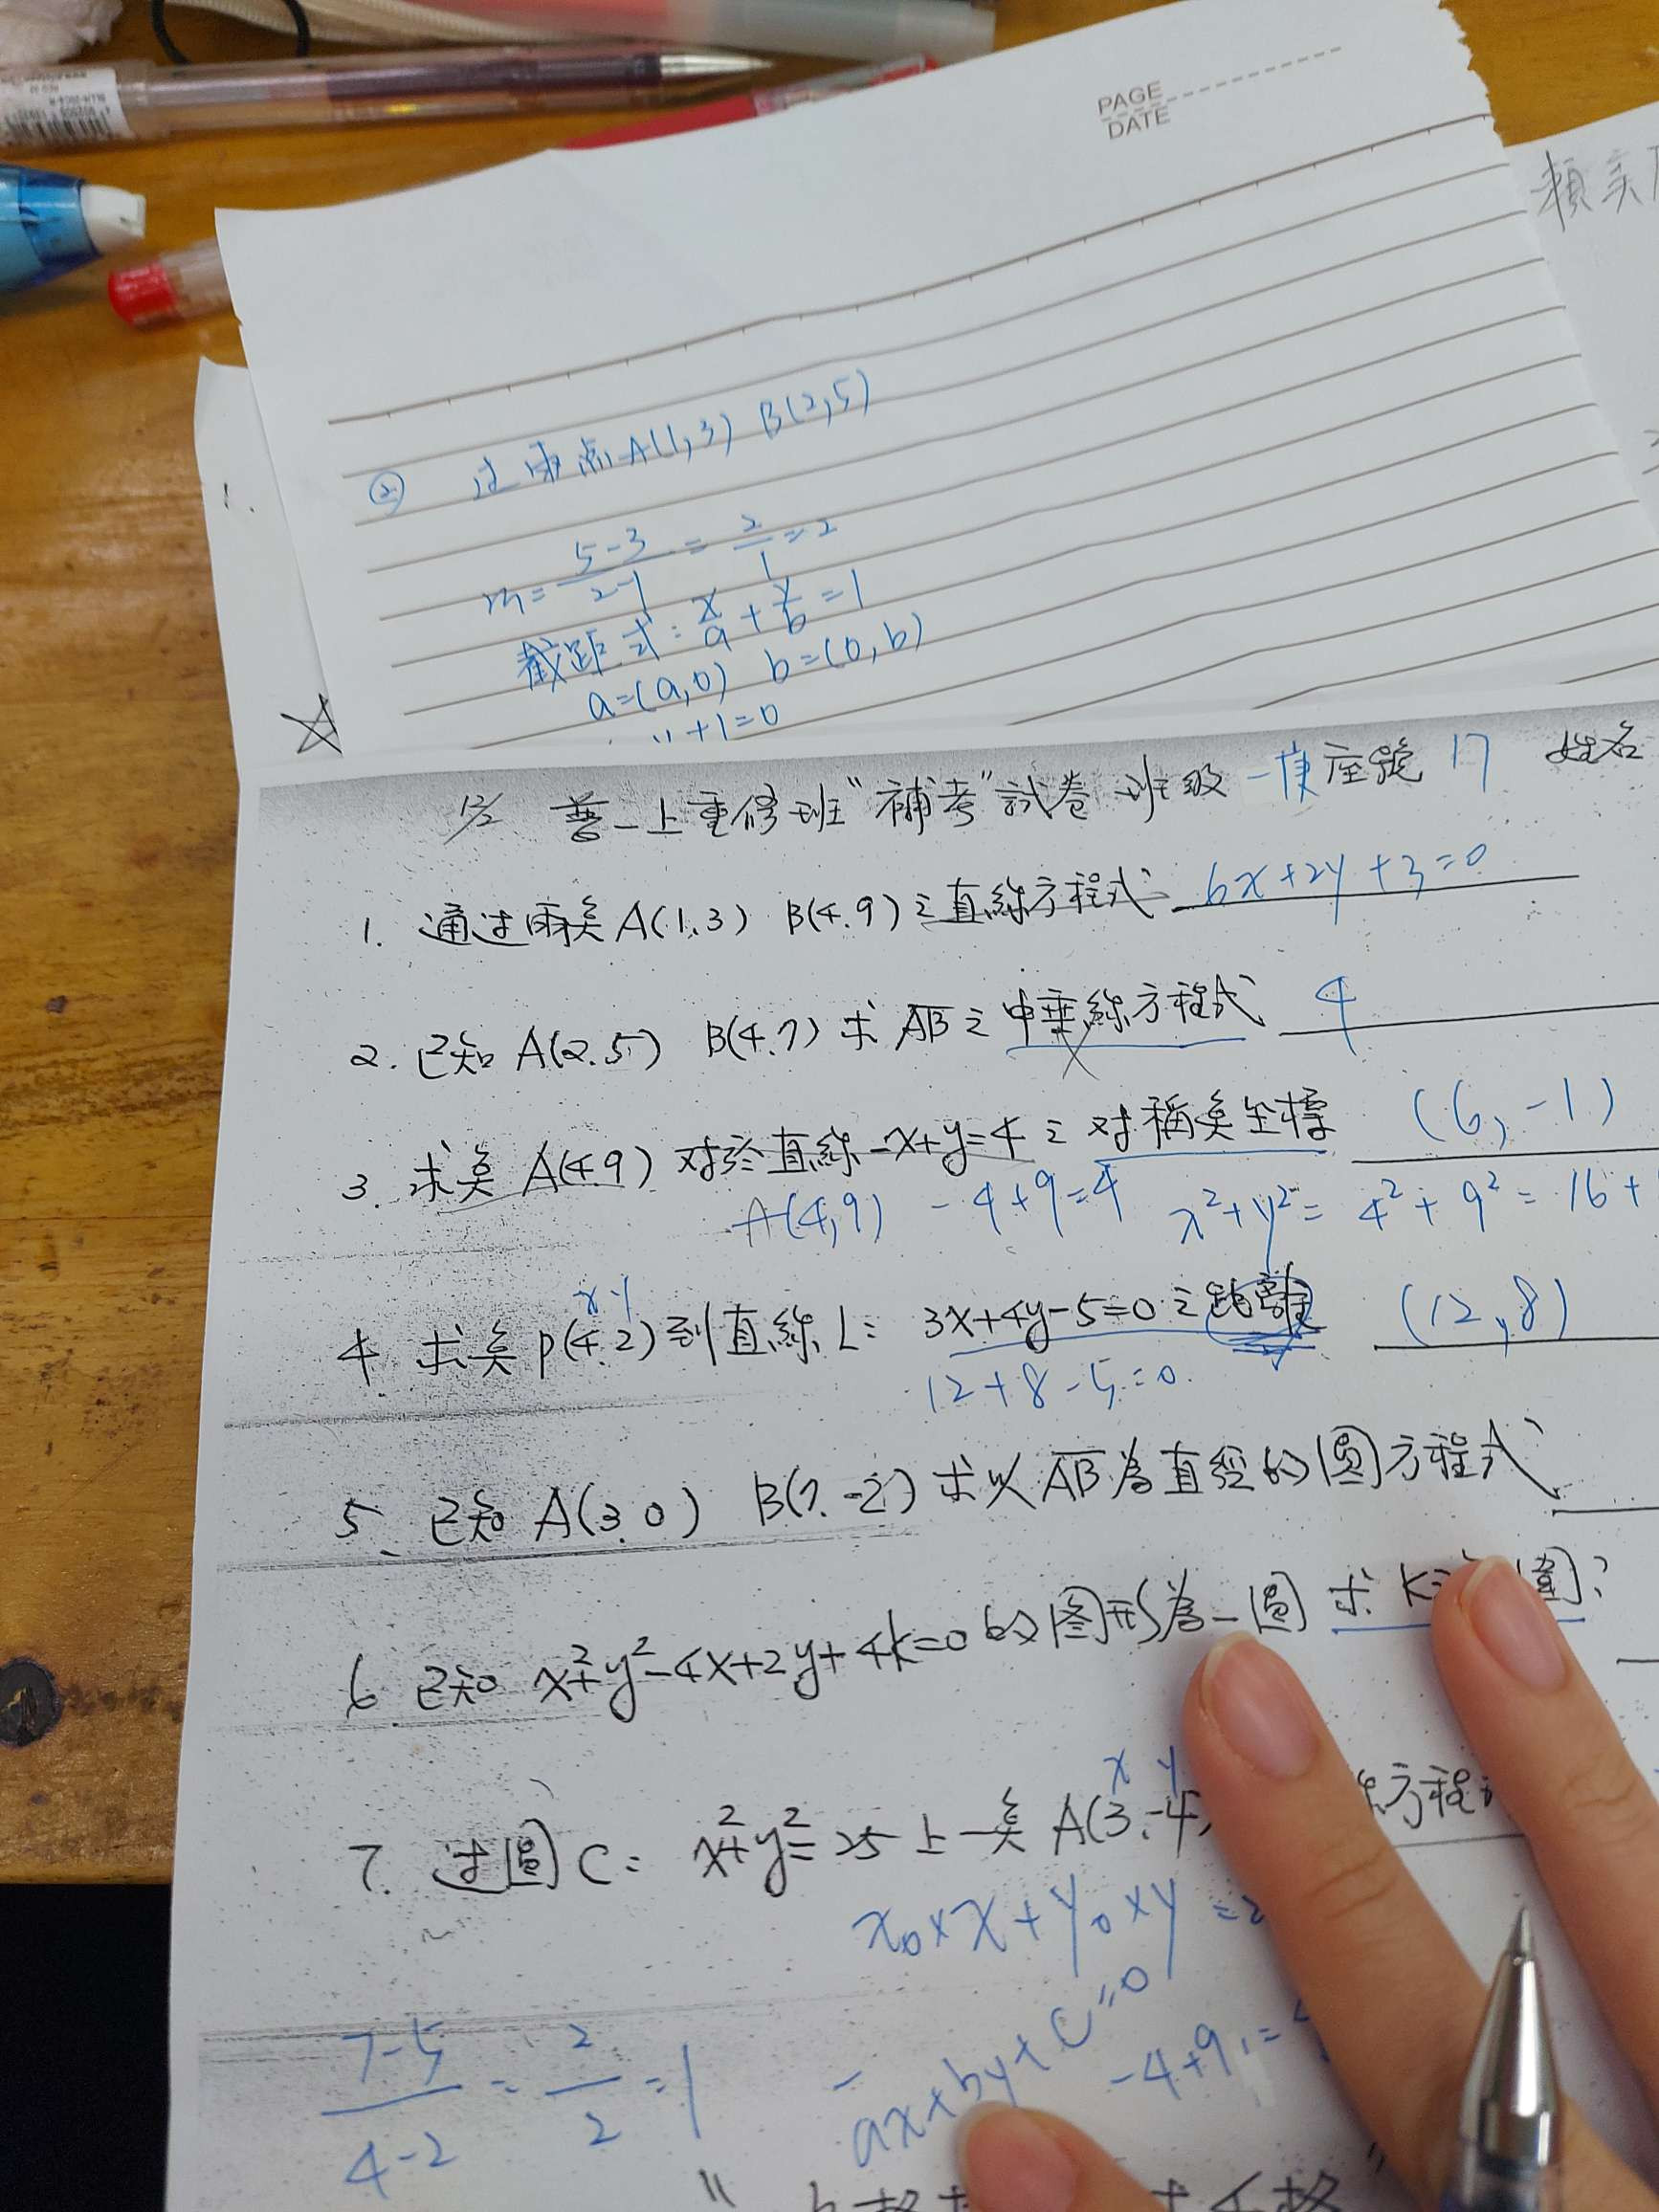 PAGE
DATE
② 过兩點A(1,3) B(2,5)
m=5-3/2-1=2/1=2
截距式:x/a+y/b=1
a=(a,0) b=(0,b)
+1=0
1.
☆
普一上重修班"補考"試卷 班級 一庚 座號 17 姓名
1. 通过兩点A(1,3) B(4,9)之直線方程式 6x+2y+3=0
2. 已知 A(2,5) B(4,7) 求 AB之中垂線方程式 4
3. 求点 A(4,9) 对於直線-x+y=4之对稱点坐標 (6,-1)
A(4,9) -4+9=4 x²+y²=4²+9²=16+
x y
4 求点 P(4,2)到直線L: 3x+4y-5=0之距離 (12,8)
12+8-5=0
5、已知 A(3,0) B(7,-2)求以AB為直徑的圓方程式
6 已知 x²+y²-4x+2y+4k=0的图形為一圓 求 k
x y
7. 过圓C: x²+y²=25上一点 A(3,-4) 方程
x₀×x+y₀×y=2
7-5/4-2=2/2=1
ax+by+c=0
-4+9=